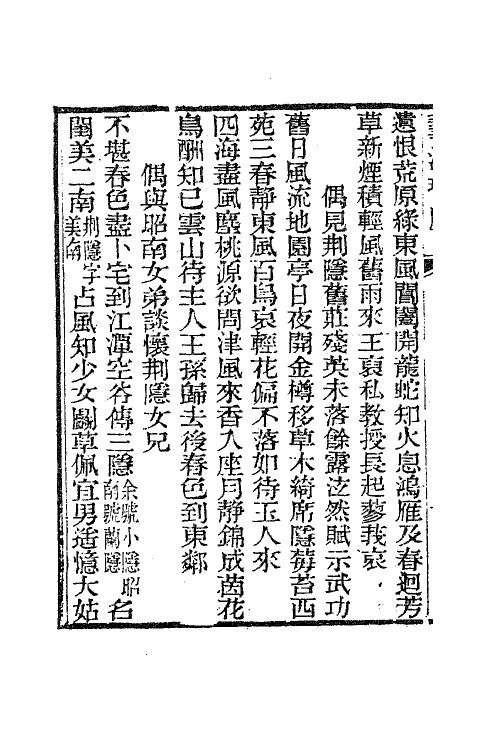 遺恨荒原綠東風閶闔開龍蛇知火息鴻雁及春迴芳
草新煙積輕風舊雨來王裒私教授長起蓼莪哀
偶見荆隱舊莊殘英未落餘露泫然賦示武功
舊日風流地園亭日夜開金樽移草木綺席隱莓苔西
苑三春靜東風百鳥哀輕花偏不落如待玉人來
四海盡風塵桃源欲問津風來香入座月靜錦成茵花
鳥酬知已雲山待主人王孫歸去後春色到東鄰
偶與昭南女弟談懷荆隱女兄
不堪春色盡卜宅到江潭空谷傳三隱余號小隱昭南號蘭隱名
閨美二南荆隱字美南占風知少女鬭草佩宜男适憶大姑